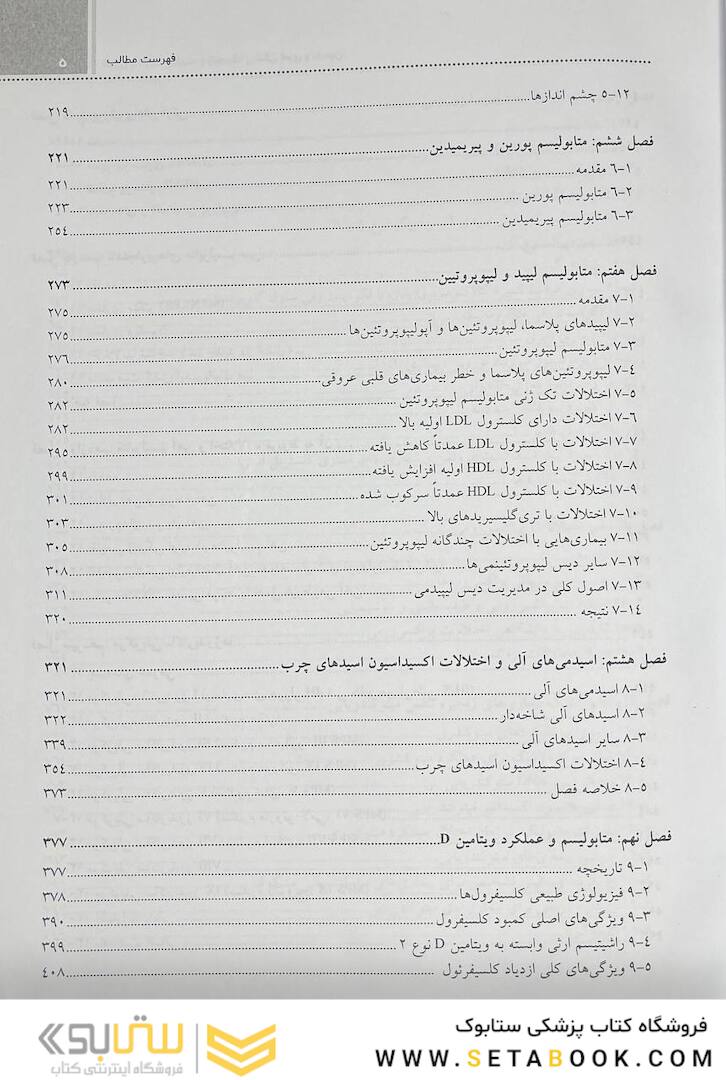 فهرست مطالب ۵
۵-۱۲ چشم اندازها ۲۱۹
فصل ششم: متابولیسم پورین و پیریمیدین ۲۲۱
۶-۱ مقدمه ۲۲۱
۶-۲ متابولیسم پورین ۲۲۳
۶-۳ متابولیسم پیریمیدین ۲۵۴
فصل هفتم: متابولیسم لیپید و لیپوپروتیین ۲۷۳
۷-۱ مقدمه ۲۷۵
۷-۲ لیپیدهای پلاسما، لیپوپروتئین‌ها و آپولیپوپروتئین‌ها ۲۷۵
۷-۳ متابولیسم لیپوپروتئین ۲۷۶
۷-۴ لیپوپروتئین‌های پلاسما و خطر بیماری‌های قلبی عروقی ۲۸۰
۷-۵ اختلالات تک ژنی متابولیسم لیپوپروتئین ۲۸۲
۷-۶ اختلالات دارای کلسترول LDL اولیه بالا ۲۸۲
۷-۷ اختلالات با کلسترول LDL عمدتاً کاهش یافته ۲۹۵
۷-۸ اختلالات با کلسترول HDL اولیه افزایش یافته ۲۹۹
۷-۹ اختلالات با کلسترول HDL عمدتاً سرکوب شده ۳۰۱
۷-۱۰ اختلالات با تری‌گلیسیریدهای بالا ۳۰۳
۷-۱۱ بیماری‌هایی با اختلالات چندگانه لیپوپروتئین ۳۰۵
۷-۱۲ سایر دیس لیپوپروتئینمی‌ها ۳۰۸
۷-۱۳ اصول کلی در مدیریت دیس لیپیدمی ۳۱۱
۷-۱۴ نتیجه ۳۲۰
فصل هشتم: اسیدمی‌های آلی و اختلالات اکسیداسیون اسیدهای چرب ۳۲۱
۸-۱ اسیدمی‌های آلی ۳۲۱
۸-۲ اسیدهای آلی شاخه‌دار ۳۲۲
۸-۳ سایر اسیدهای آلی ۳۳۹
۸-۴ اختلالات اکسیداسیون اسیدهای چرب ۳۵۴
۸-۵ خلاصه فصل ۳۷۳
فصل نهم: متابولیسم و عملکرد ویتامین D ۳۷۷
۹-۱ تاریخچه ۳۷۷
۹-۲ فیزیولوژی طبیعی کلسیفرول‌ها ۳۷۸
۹-۳ ویژگی‌های اصلی کمبود کلسیفرول ۳۹۰
۹-۴ راشیتیسم ارثی وابسته به ویتامین D نوع ۲ ۳۹۹
۹-۵ ویژگی‌های کلی ازدیاد کلسیفرئول ۴۰۸
فروشگاه کتاب پزشکی ستابوک
WWW.SETABOOK.COM
ستابوک
فروشگاه اینترنتی کتاب